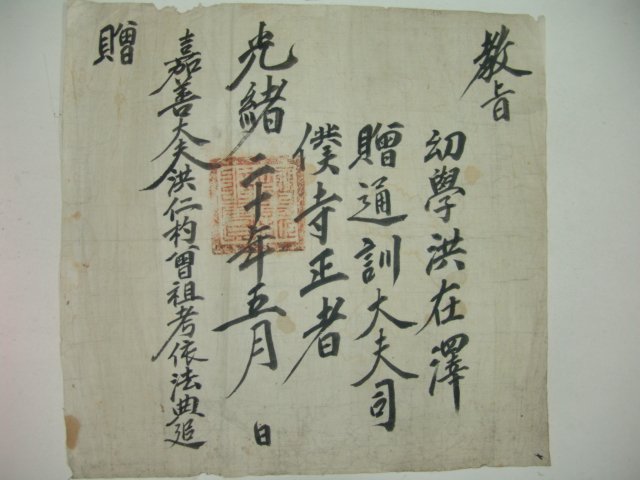 教旨
幼學洪在澤
贈通訓大夫司
僕寺正者
光緒二十年五月 日
嘉善大夫洪仁杓曾祖考依法典追
贈